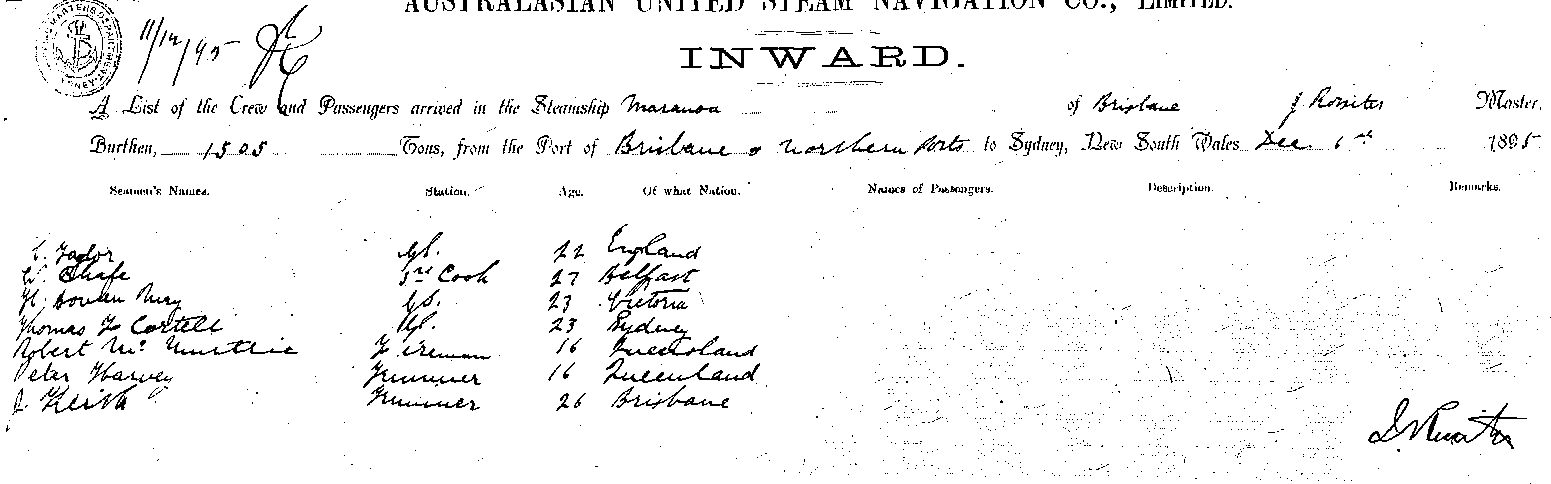 AUSTRALASIAN UNITED STEAM NAVIGATION CO., LIMITED.
11/12/95
INWARD.
A List of the Crew and Passengers arrived in the Steamship Maranoa of Brisbane J Rossiter Master,
Burthen, 1505 Tons, from the Port of Brisbane & Northern Ports to Sydney, New South Wales Dec 6th 1895
Seamen's Names. Station. Age. Of what Nation. Names of Passengers. Description. Remarks.
22 England
W. Chafe 3rd Cook 27 Belfast
H. Bowen 23 Victoria
Thomas F Cortell 23 Sydney
Robert Mc Fireman 16 Queensland
Peter Harvey Trimmer 16 Queenland
J Keith Trimmer 26 Brisbane